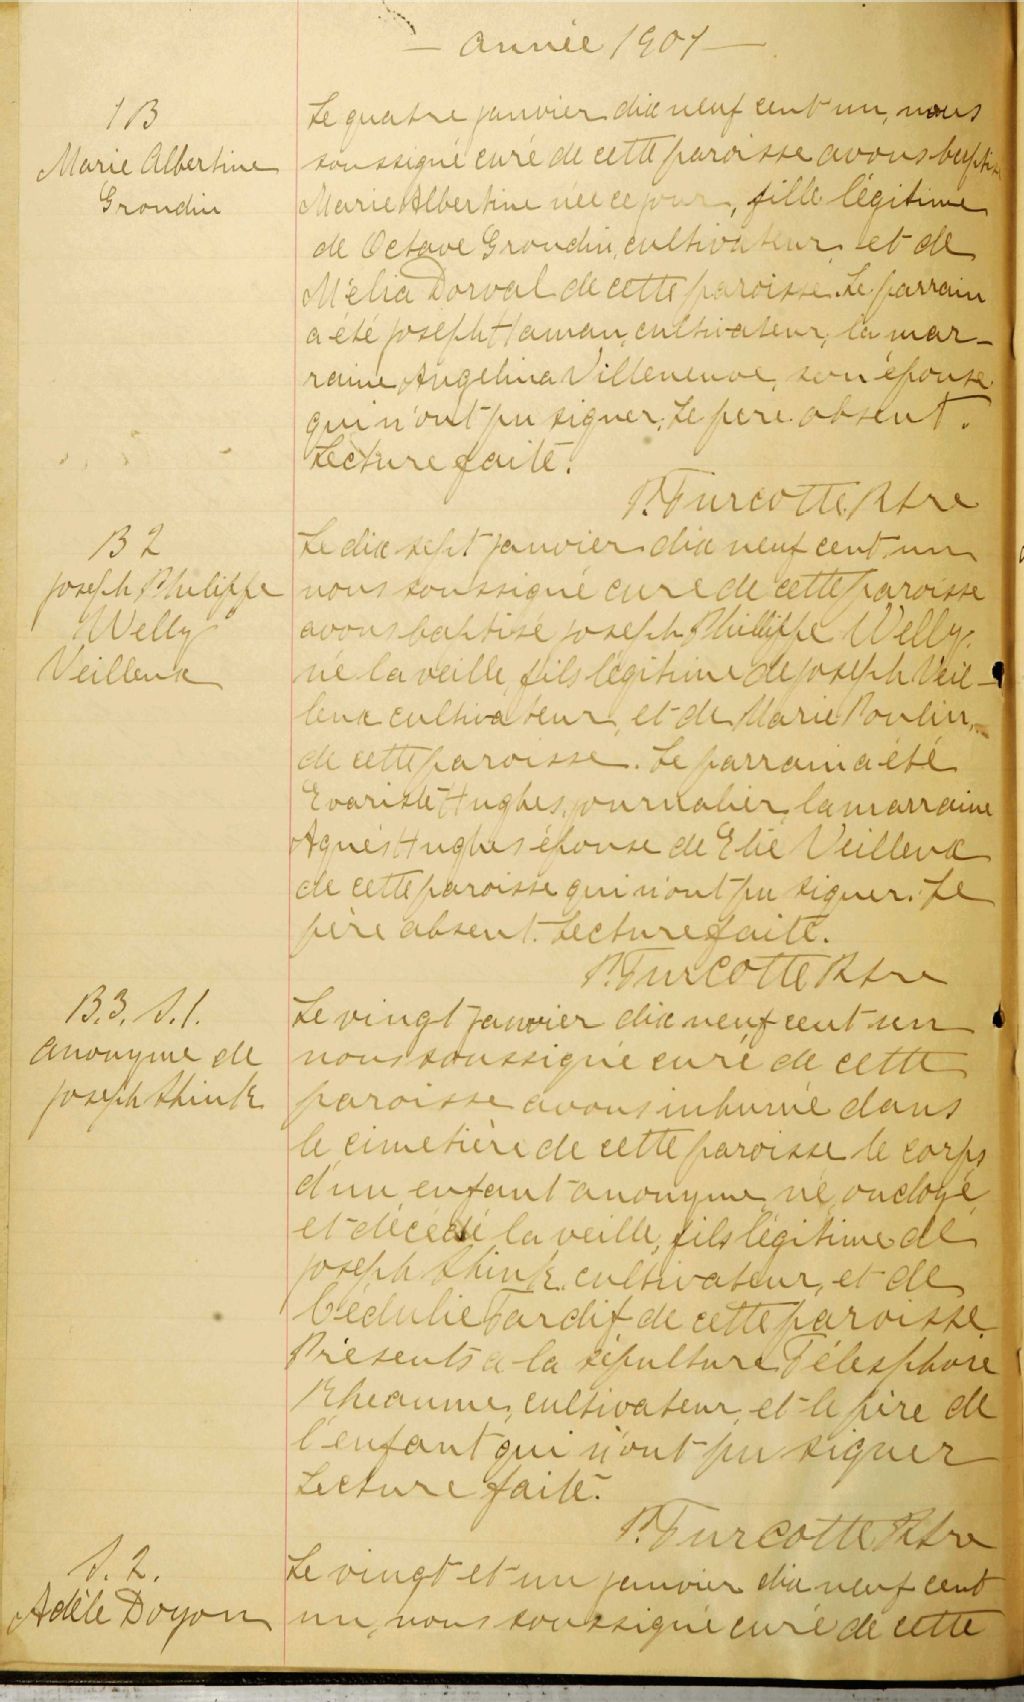 — Année 1901 —
1 B
Marie Albertine
Grondin
Le quatre janvier dix neuf cent un, nous
soussigné curé de cette paroisse avons baptisé
Marie Albertine née ce jour, fille légitime
de Octave Grondin, cultivateur, et de
Mélia Dorval de cette paroisse. Le parrain
a été Joseph Haman, cultivateur, la mar-
raine Angelina Villeneuve, son épouse
qui n'ont pu signer. Le père absent.
Lecture faite.
P. Turcotte Ptre
B 2
Joseph Philippe
Welly
Veilleux
Le dix sept janvier dix neuf cent un
nous soussigné curé de cette paroisse
avons baptisé Joseph Phillippe Welly,
né la veille, fils légitime de Joseph Veil-
leux cultivateur, et de Marie Poulin,
de cette paroisse. Le parrain a été
Evariste Hughes, journalier, la marraine
Agnès Hughes épouse de Elie Veilleux
de cette paroisse qui n'ont pu signer. Le
père absent. Lecture faite.
P. Turcotte Ptre
B.3. S.1.
anonyme de
Joseph Shink
Le vingt janvier dix neuf cent un
nous soussigné curé de cette
paroisse avons inhumé dans
le cimetière de cette paroisse le corps
d'un enfant anonyme, né, ondoyé,
et décédé la veille, fils légitime de
Joseph Shink, cultivateur, et de
Cédulie Tardif de cette paroisse.
Présents à la sépulture Télesphore
Rheaume, cultivateur, et le père de
l'enfant qui n'ont pu signer
Lecture faite.
P. Turcotte Ptre
S. 2.
Adèle Doyon
Le vingt et un janvier dix neuf cent
un, nous soussigné curé de cette